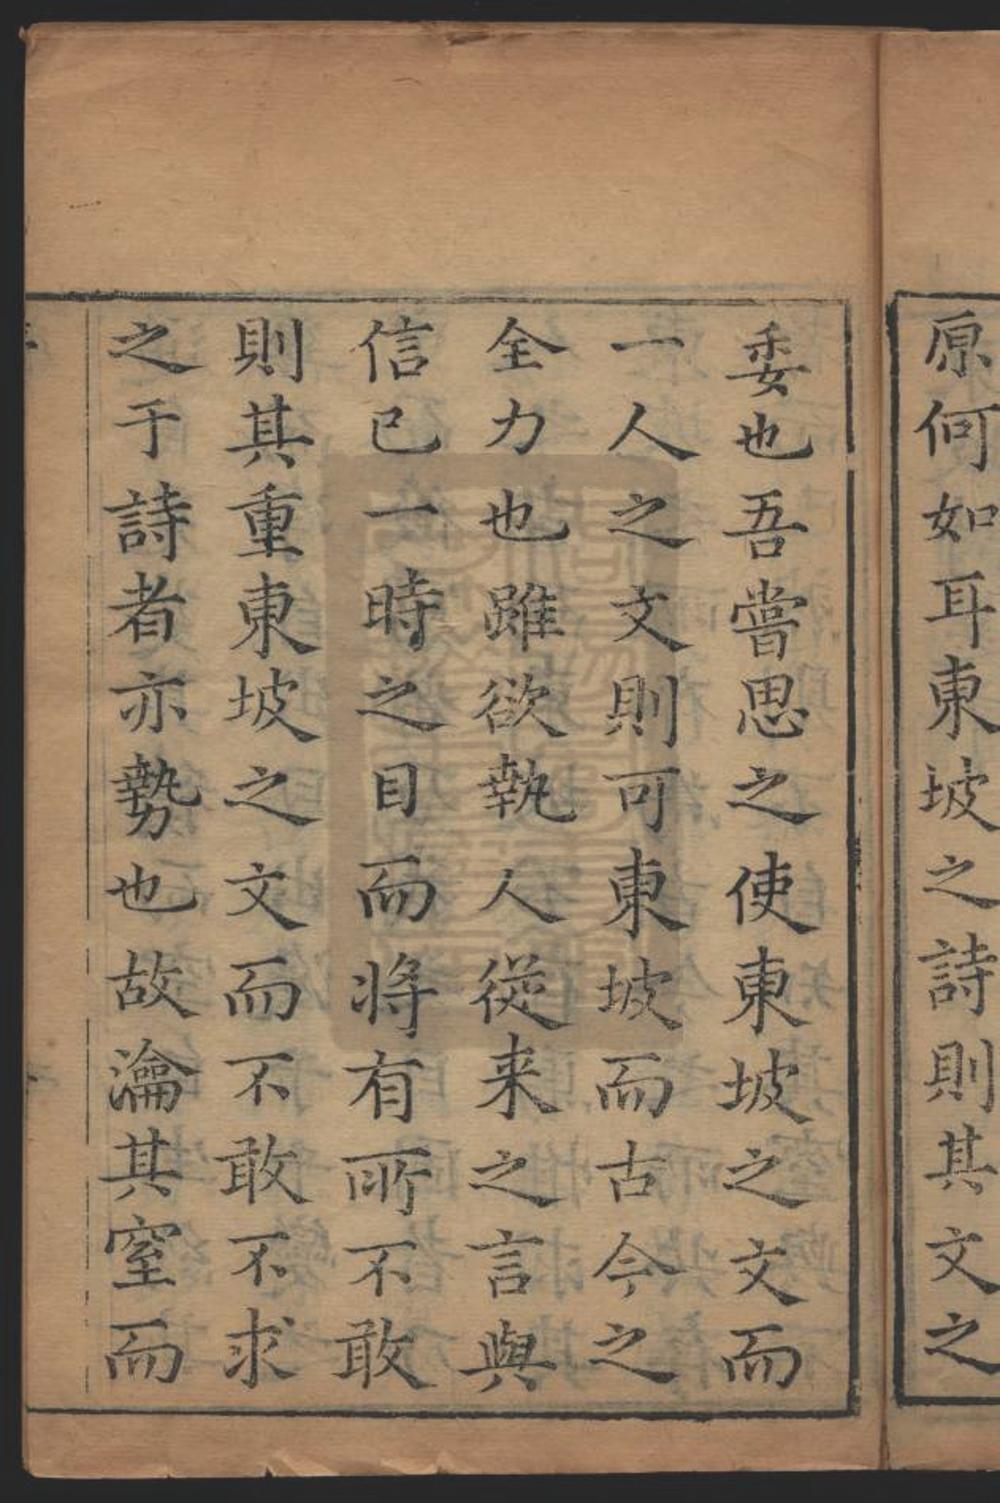 原何如耳東坡之詩則其文之
委也吾嘗思之使東坡之文而
一人之文則可東坡而古今之
全力也雖欲執人從来之言與
信已一時之目而将有所不敢
則其重東坡之文而不敢不求
之于詩者亦勢也故瀹其窒而